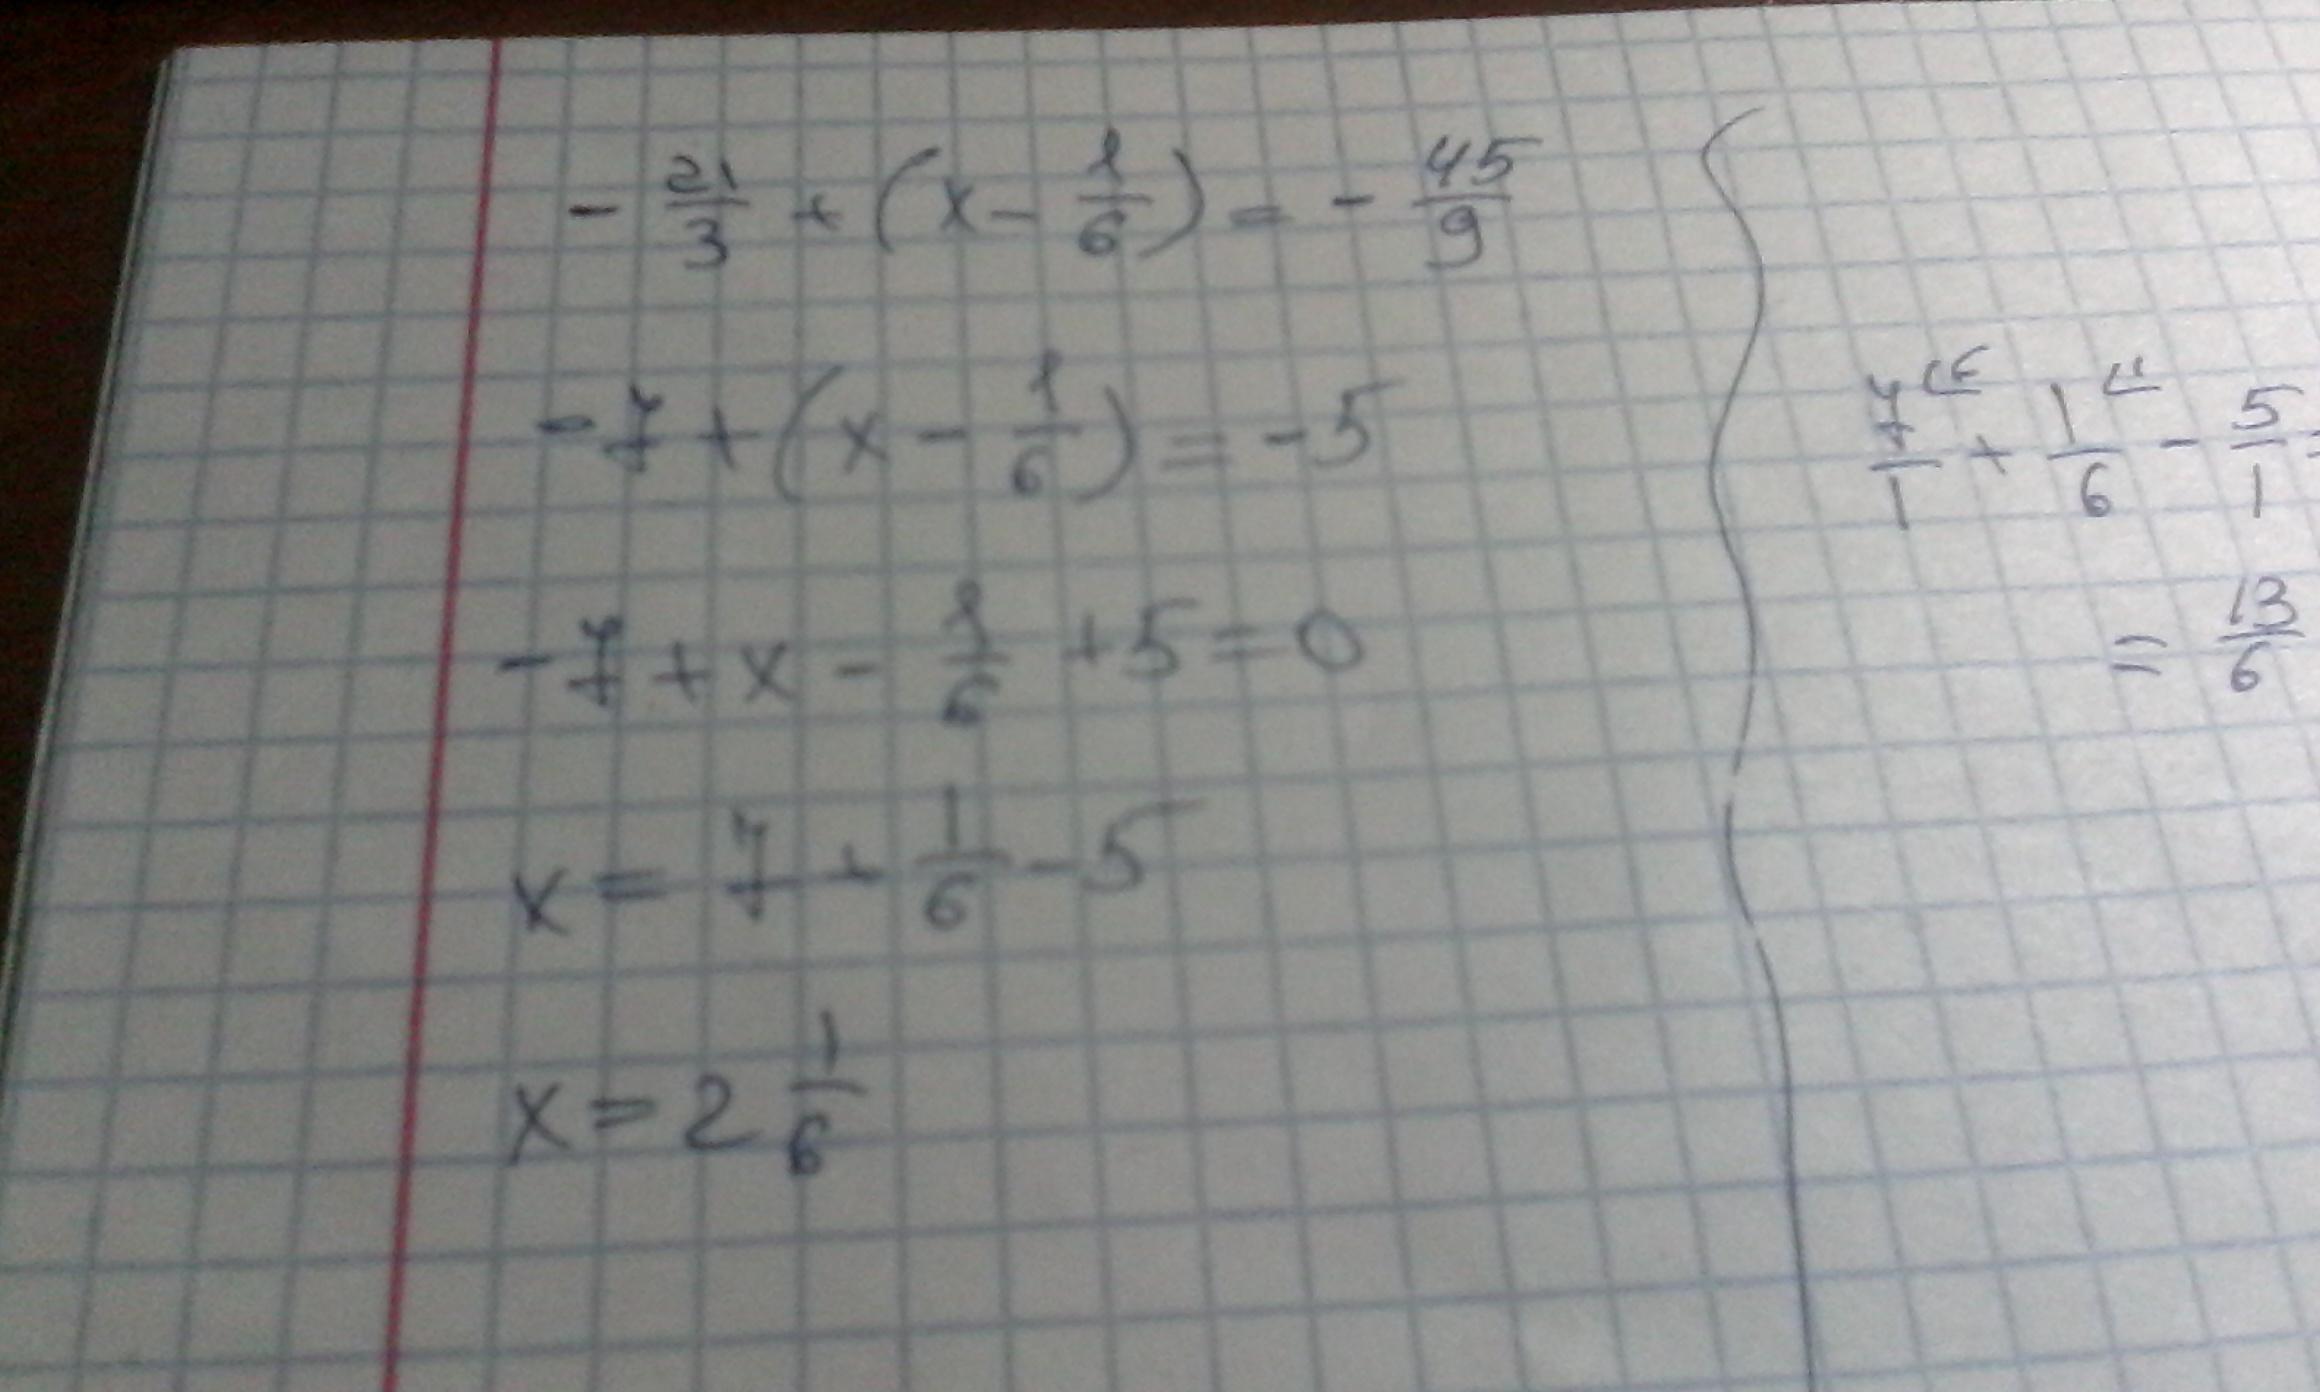 - 21/3 + (x - 1/6) = - 45/9
-7 + (x - 1/6) = -5
-7 + x - 1/6 + 5 = 0
x = 7 + 1/6 - 5
x = 2 1/6
7/1 + 1/6 - 5/1 =
= 13/6